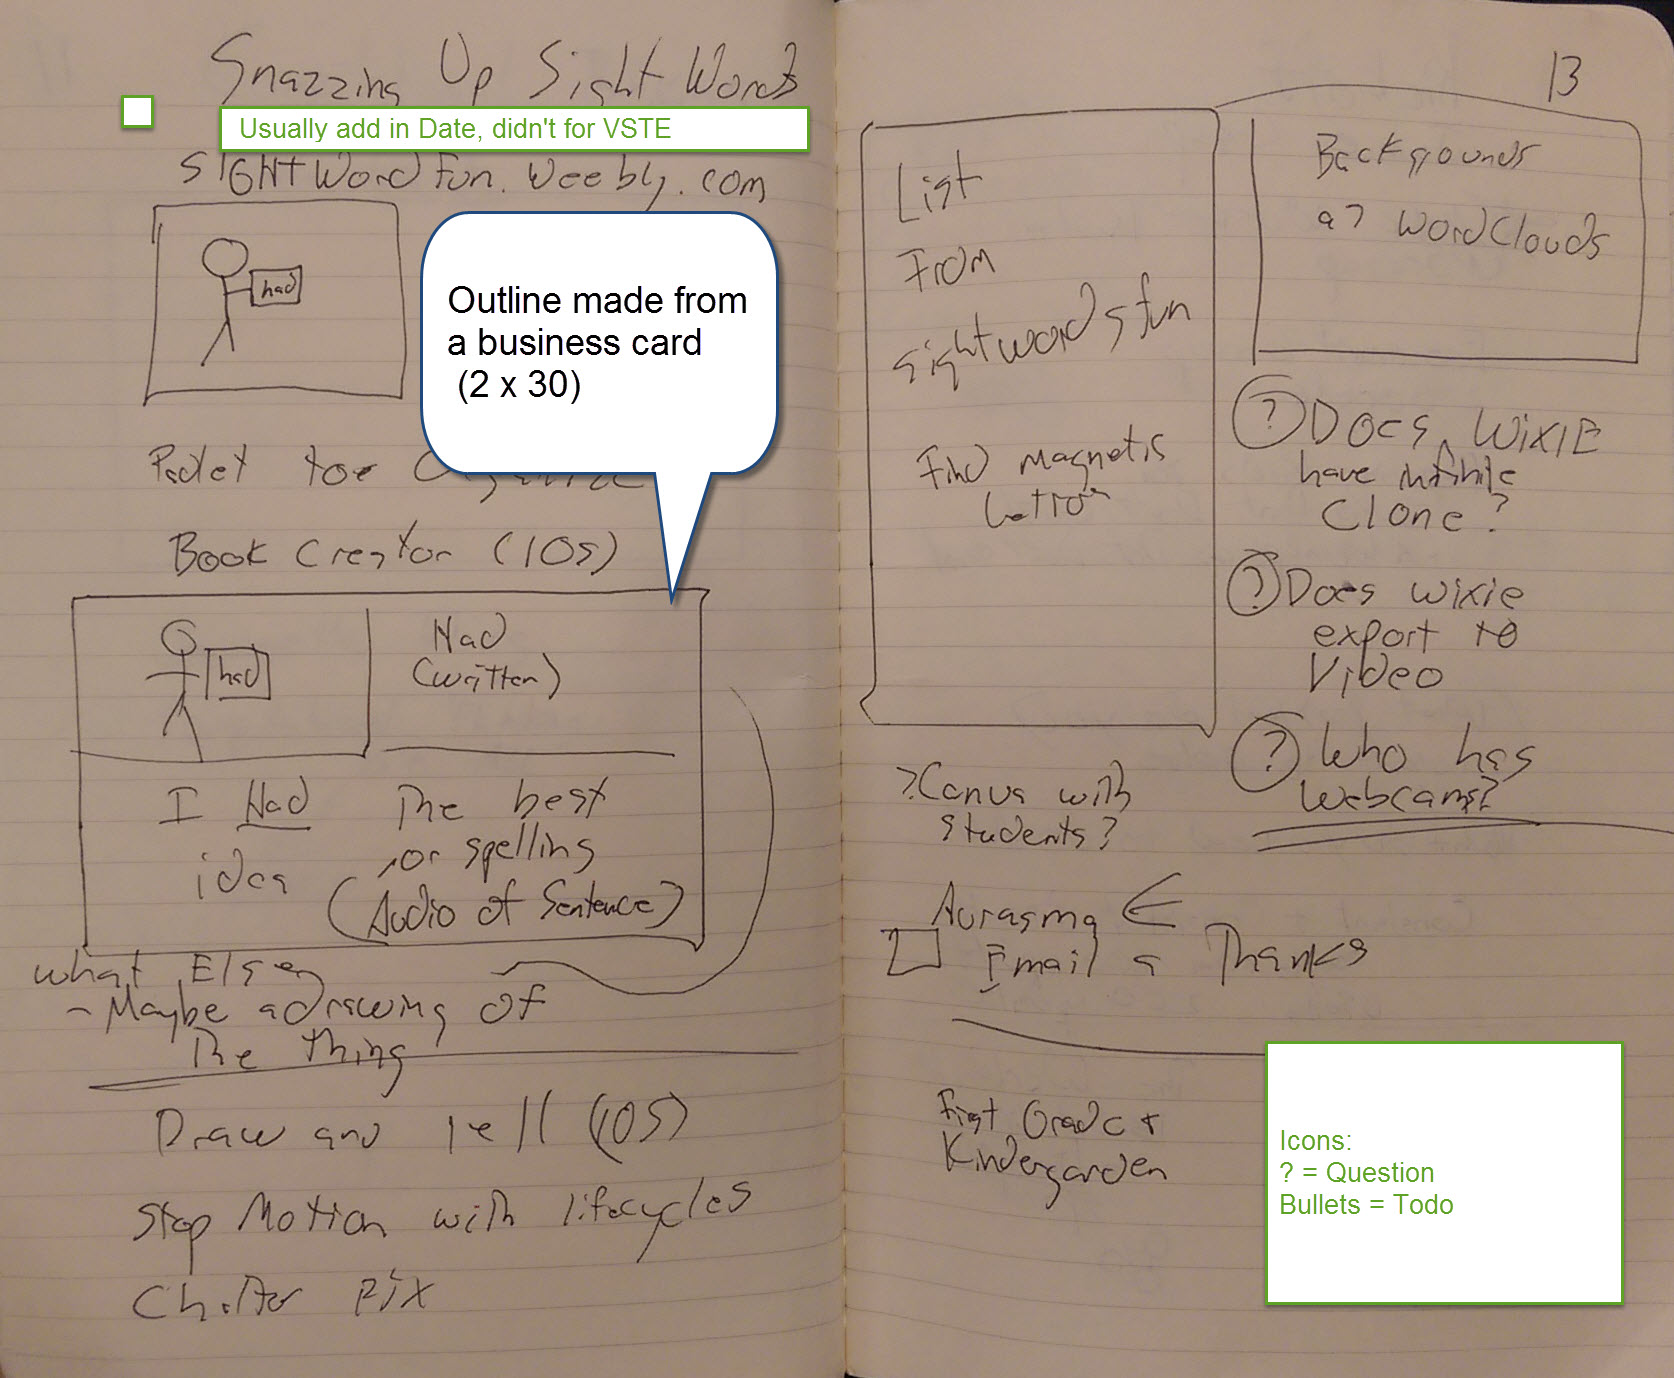 Snazzing Up Sight Words
Usually add in Date, didn't for VSTE
SIGHTWordFun.weebly.com
had
Outline made from
a business card
(2 x 30)
Padlet to
Book Creator (IOS)
had
Had
(written)
I Had The best
idea or spelling
(Audio of Sentence)
What Else
- Maybe a drawing of
The thing
Draw and Tell (IOS)
Stop Motion with lifecycles
Chatter Pix
13
List
From
sightwordsfun
Find magnetis
Backgrounds
a? WordClouds
? Does Wixie
have infinite
Clone?
? Does wixie
export to
Video
? Who has
Webcams?
? Canva with
students?
Aurasma
Email a Thanks
First Grade +
Kindergarden
Icons:
? = Question
Bullets = Todo